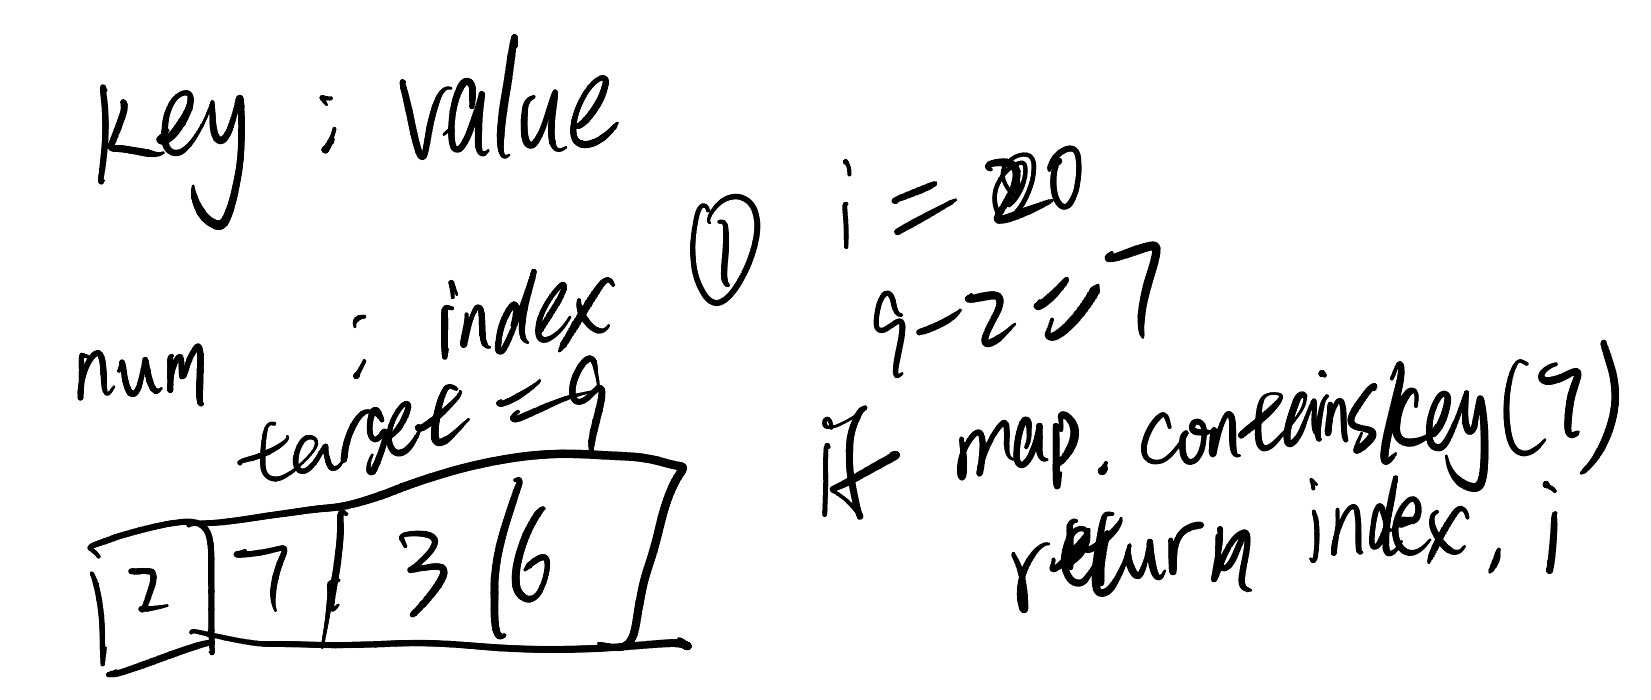 key : value
num : index
target = 9
2 7 3 6
①
i = 0
9-2=7
if map.containskey(7)
return index, i